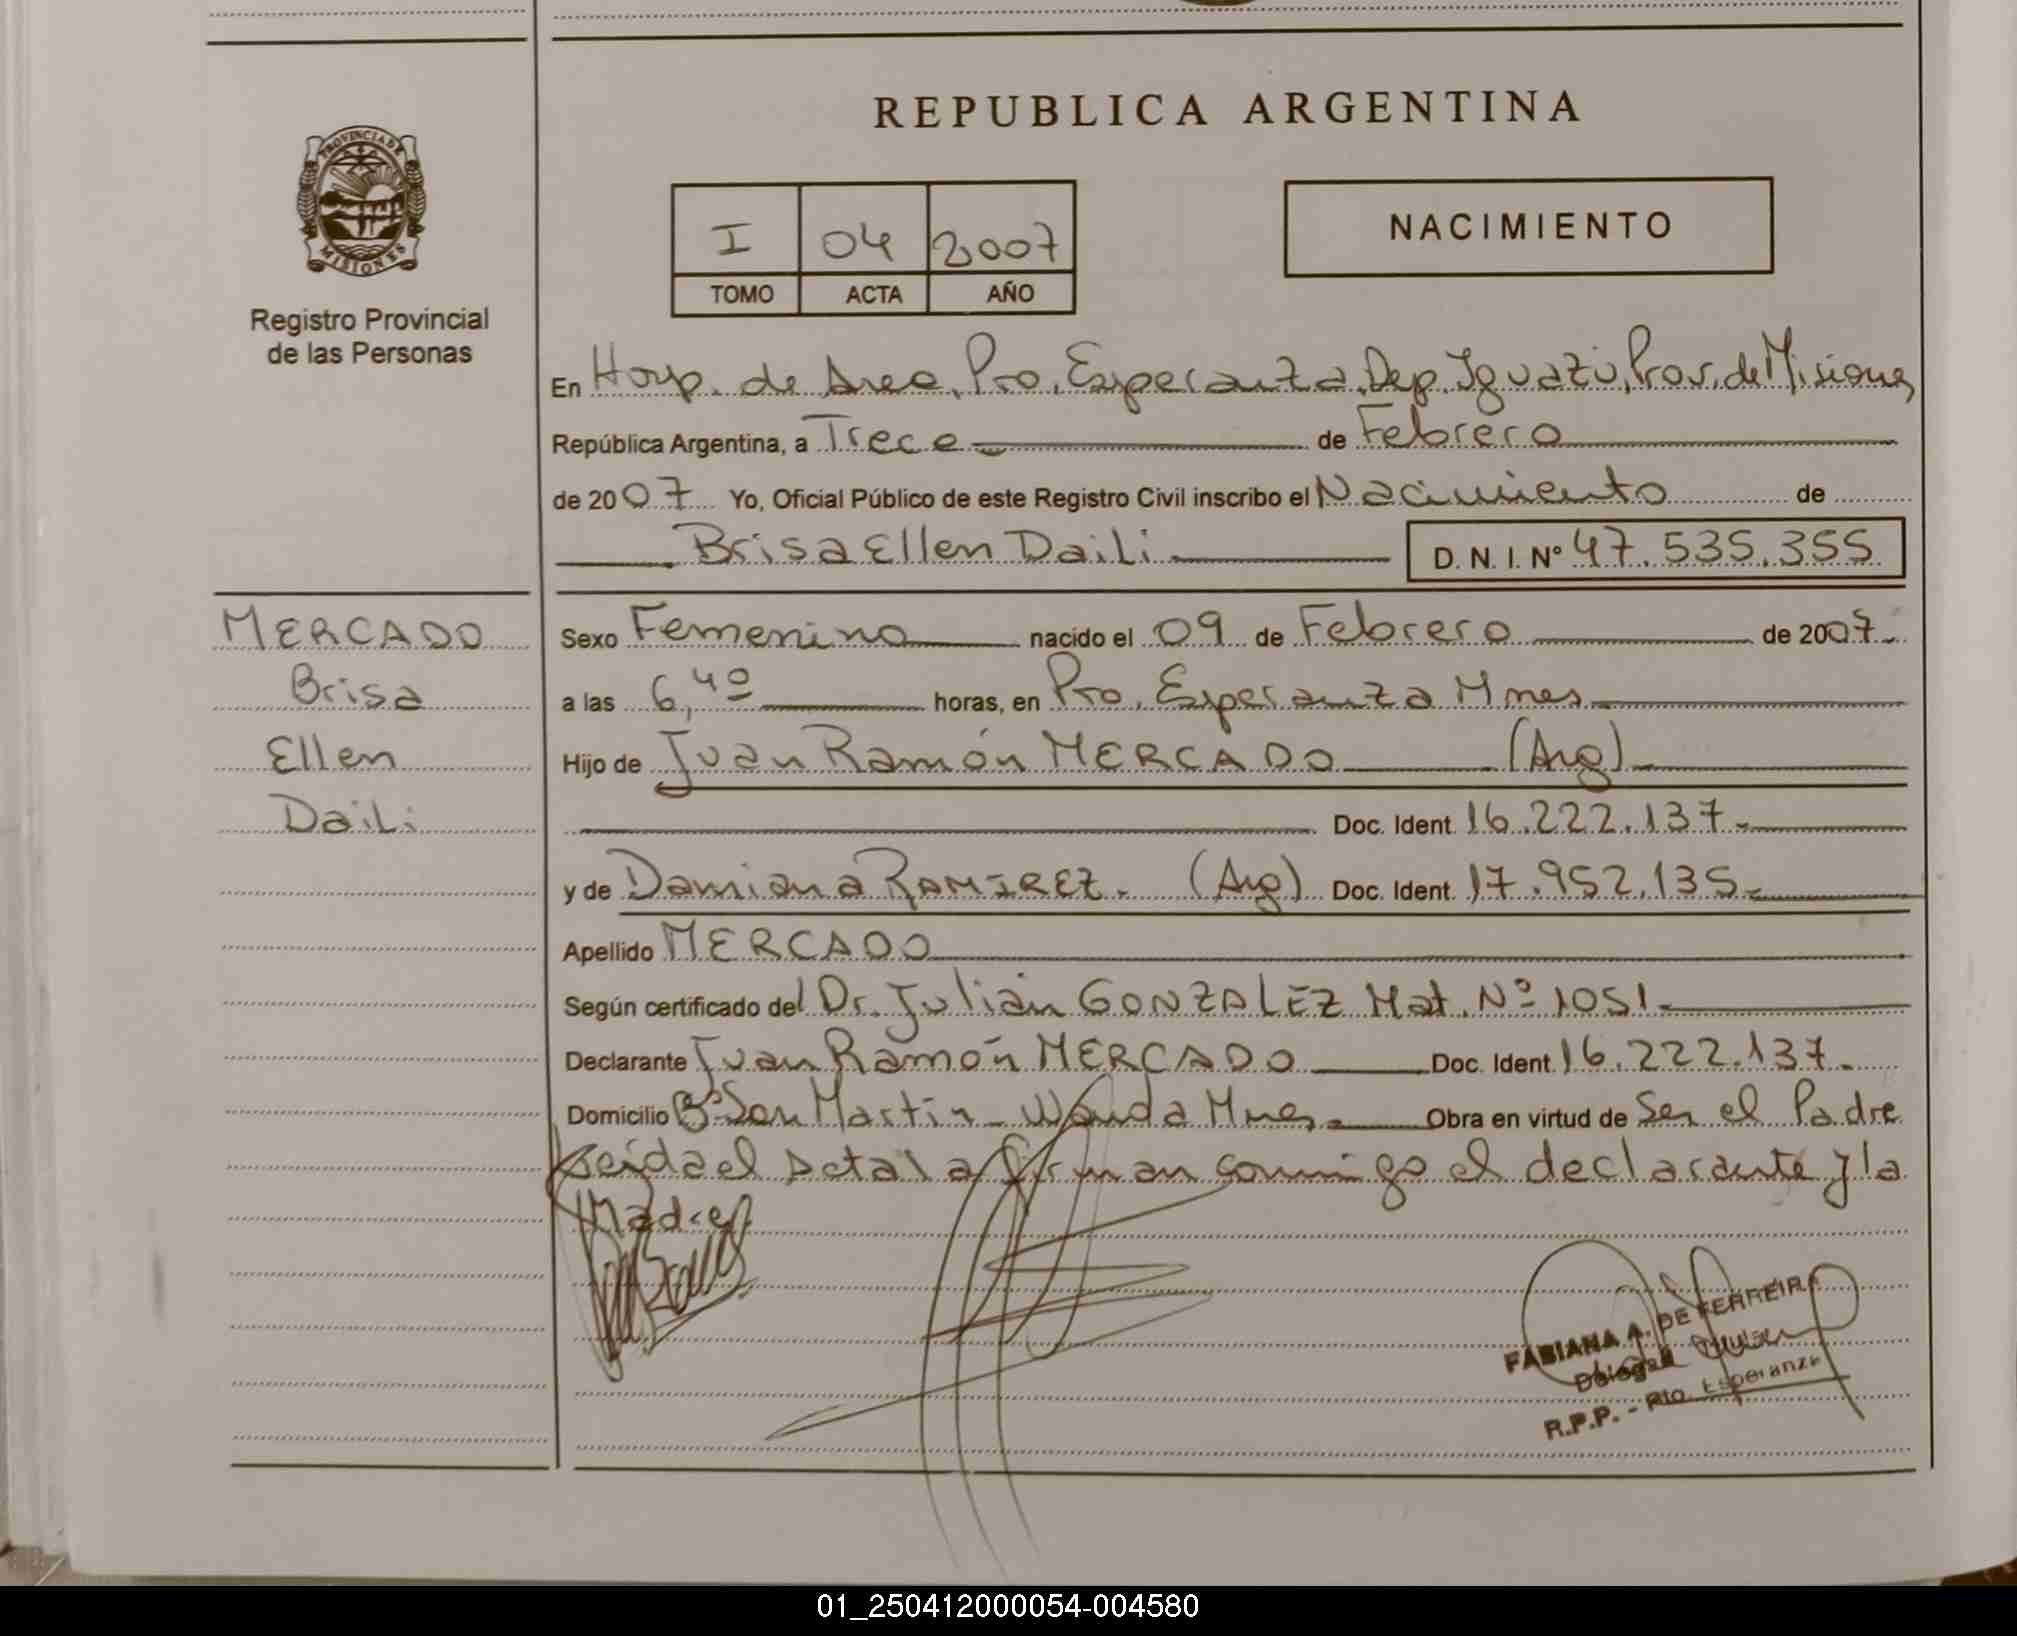 REPUBLICA ARGENTINA
PROVINCIA DE
MISIONES
Registro Provincial
de las Personas
I 04 2007
TOMO ACTA AÑO
NACIMIENTO
En Hosp. de Area, Pto. Esperanza, Dep. Iguazú, Prov. de Misiones
República Argentina, a Trece de Febrero
de 2007 Yo, Oficial Público de este Registro Civil inscribo el Nacimiento de
Brisa Ellen Daili D. N. I. Nº 47.535.355
MERCADO
Brisa
Ellen
Daili
Sexo Femenino nacido el 09 de Febrero de 2007
a las 6,40 horas, en Pto. Esperanza Mnes
Hijo de Juan Ramón MERCADO (Arg)
Doc. Ident. 16.222.137
y de Damiana RAMIREZ. (Arg) Doc. Ident. 17.952.135
Apellido MERCADO
Según certificado del Dr. Julián GONZALEZ Mat. Nº 1051
Declarante Juan Ramón MERCADO Doc. Ident. 16.222.137
Domicilio Bº San Martín - Wanda Mnes. Obra en virtud de Ser el Padre
Leida el acta la firman conmigo el declarante y la
Madre
FABIANA A. DE FERREIRA
Delegada Titular
R.P.P. - Pto. Esperanza
01_250412000054-004580